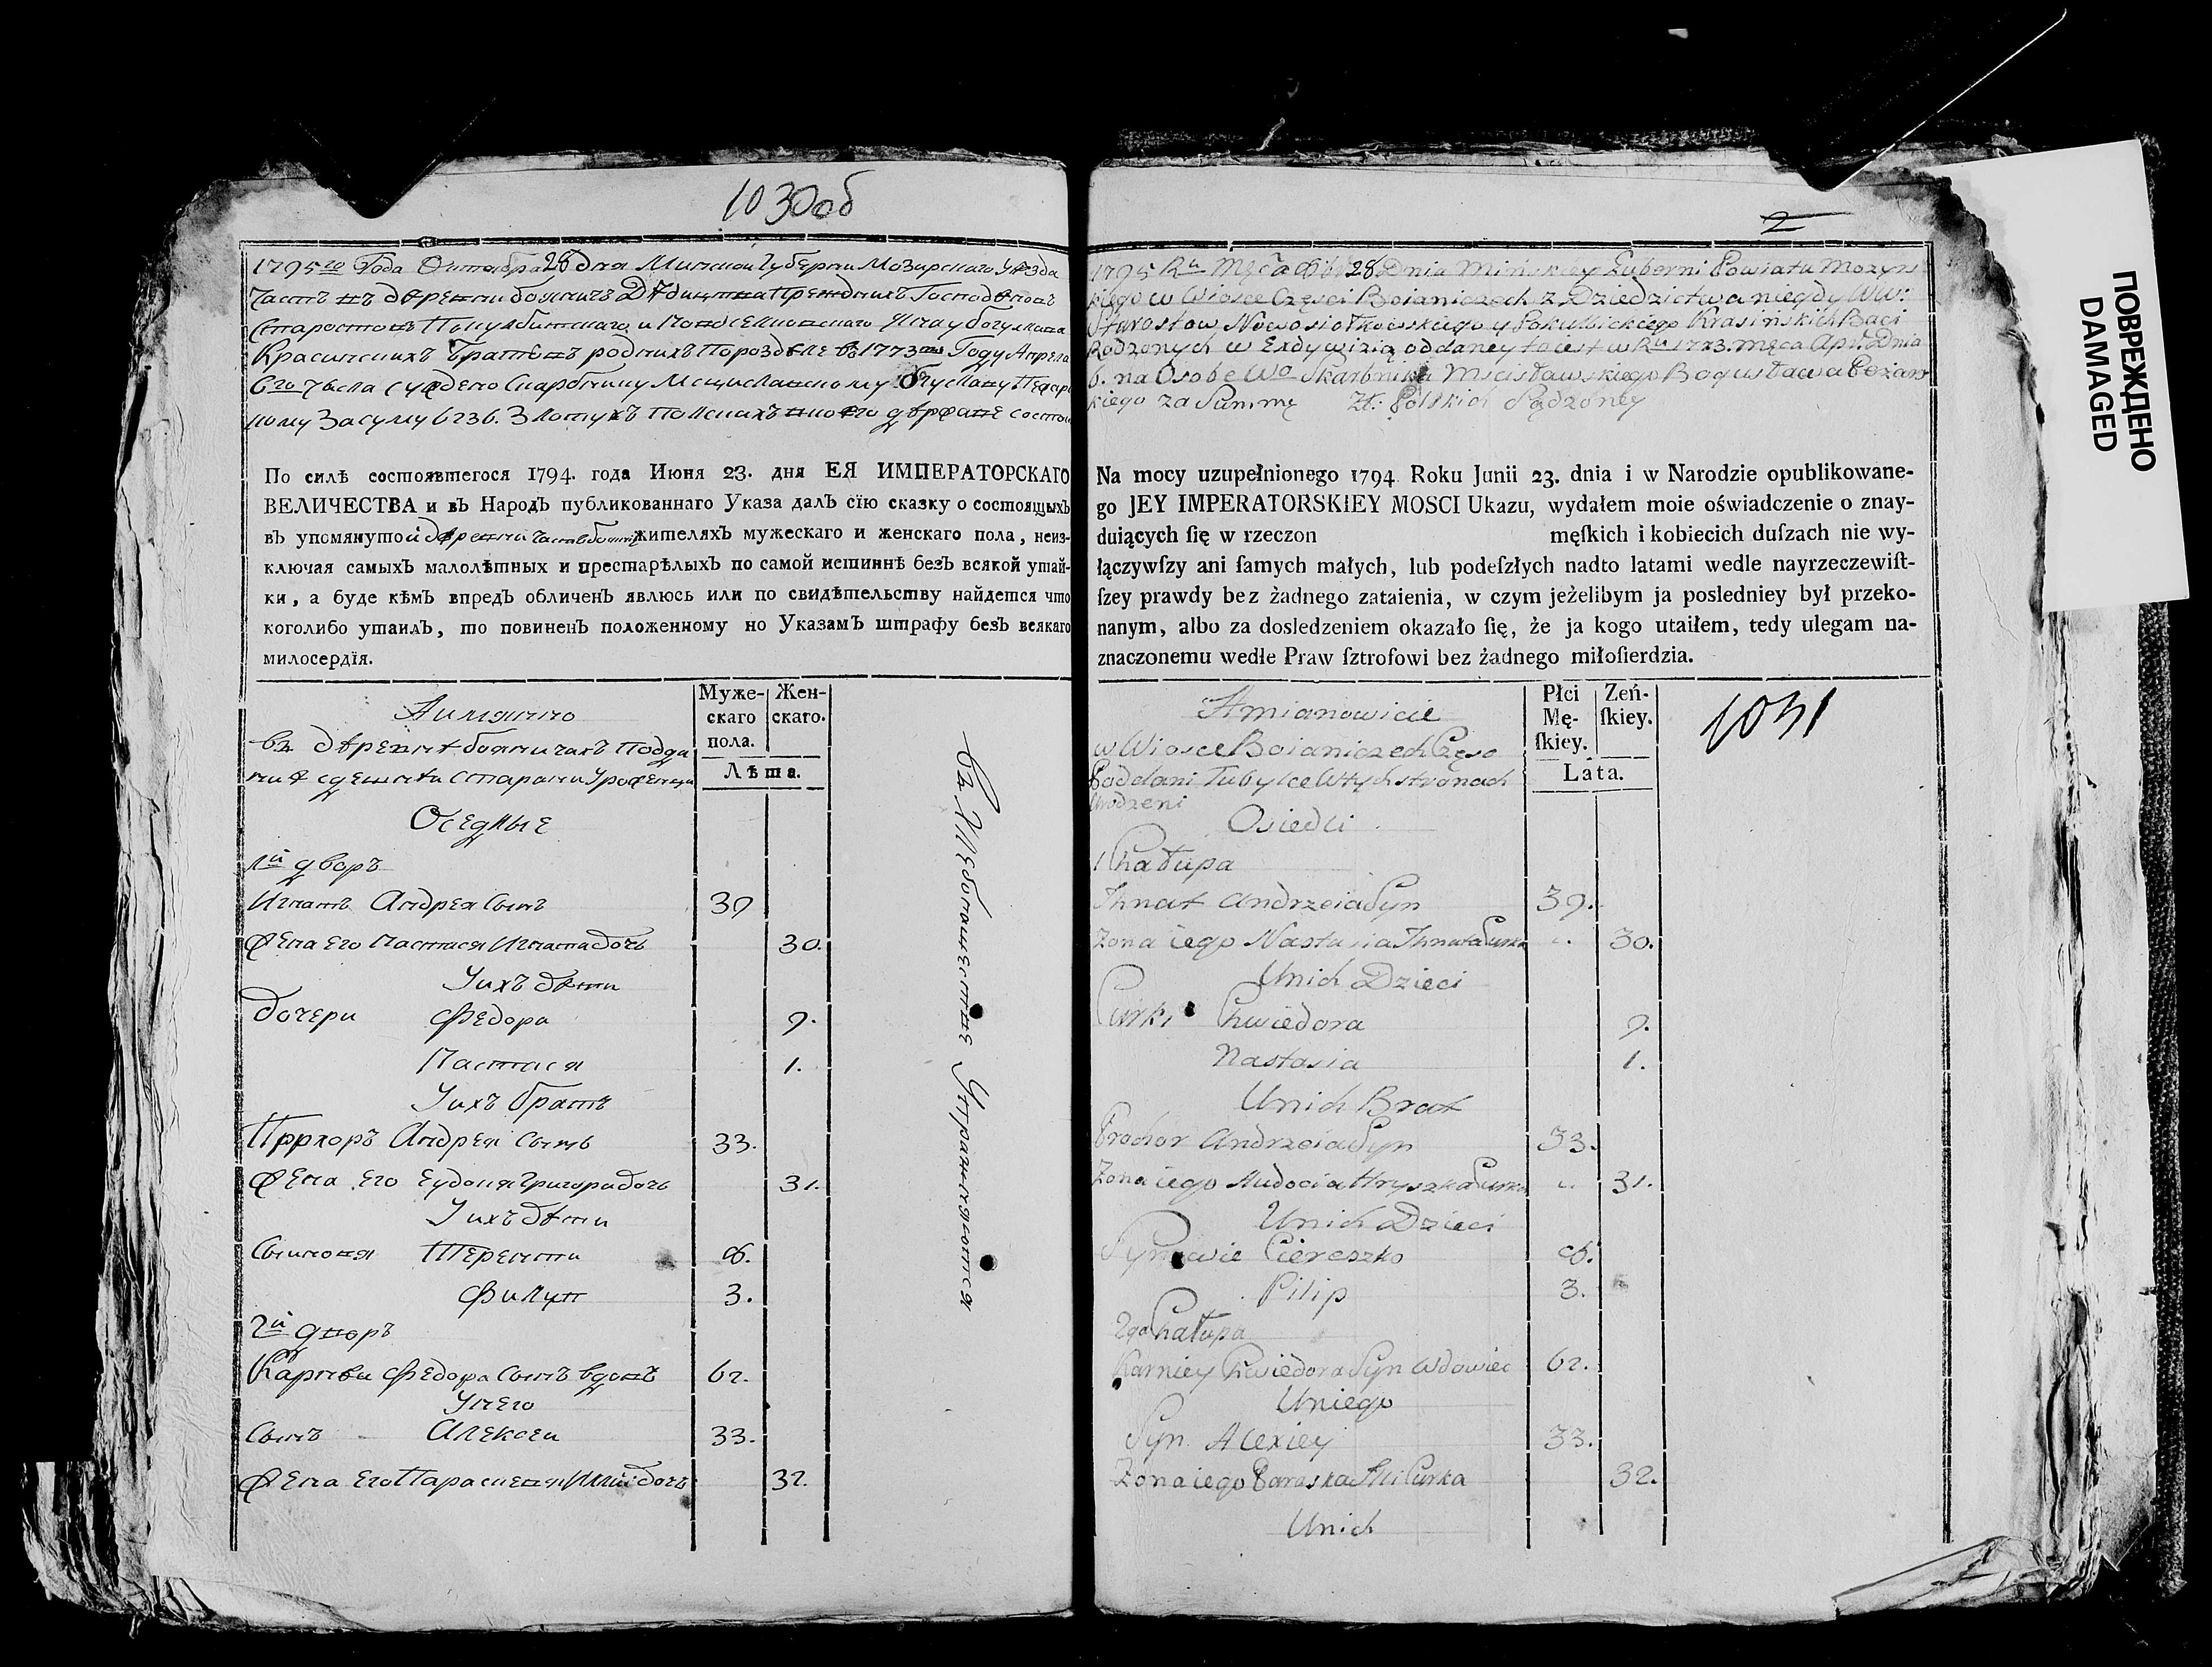 1030об
1795го Года Октября 28 дня Минской Губерни Мозирскаго Уезда
Часть въ деревни бояничъ Дѣдицтва Преждныхъ Господъ
Старостовъ и Новоселковскаго
Красинскихъ братовъ родныхъ 1773 Году Апреля
6го числа Скарбнику Мсциславскому
ному За суму 6236. Злотухъ Полскихъ
По силѣ состоявшегося 1794. года Июня 23. дня ЕЯ ИМПЕРАТОРСКАГО
ВЕЛИЧЕСТВА и въ Народъ публикованнаго Указа далъ сїю сказку о состоящыхъ
въ упомянутой деревни жителяхъ мужескаго и женскаго пола, неиз-
ключая самыхъ малолѣтныхъ и престарѣлыхъ по самой истиннѣ безъ всякой утай-
ки, а буде кѣмъ впредъ обличенъ явлюсь или по свидѣтельству найдется что
коголибо утаилъ, то повиненъ положенному по Указамъ штрафу безъ всякаго
милосердїя.
Муже-
скаго
пола.
Жен-
скаго.
Лѣта.
Аимянно
въ деревни бояничахъ Подда
Оседлые
1й дворъ
Игнатъ Андрея Сынъ 39
Жена его Настася Игната дочь 30.
Уихъ дѣти
дочери Федора 9.
Настася 1.
Уихъ братъ
Прохоръ Андрея Сынъ 33.
Жена его Еудокия Григора дочь 31.
Уихъ дѣти
Сыновя Терентии 8.
Филип 3.
2й дворъ
Карнеи Федора Сынъ вдовъ 62.
Унего
Сынъ Алексеи 33.
Жена его Параскевя Илии дочь 32.
2
1795 Ru Mca 8br 28 Dnia Mińskiey Guberni Powiatu Mozyrs
kiego w Wiosce Części Boianiczach z Dziedzictwa niegdy WW:
Starostow Nowosiołkowskiego y Pokulbickiego Krasińskich Baci
Rodzonych w Exdywizią oddaney to iest w Ru 1773. męca Apr. Dnia
6. na Osobe Wo Skarbnika Mscisławskiego Bogusława
kiego za Summę Zł: Polskich Sądzoney
Na mocy uzupełnionego 1794 Roku Junii 23. dnia i w Narodzie opublikowane-
go JEY IMPERATORSKIEY MOSCI Ukazu, wydałem moie oświadczenie o znay-
duiących ſię w rzeczon męſkich i kobiecich duſzach nie wy-
łączywſzy ani ſamych małych, lub podeſzłych nadto latami wedle nayrzeczewiſt-
ſzey prawdy bez żadnego zataienia, w czym jeżelibym ja posledniey był przeko-
nanym, albo za dosledzeniem okazało ſię, że ja kogo utaiłem, tedy ulegam na-
znaczonemu wedłe Praw ſztrofowi bez żadnego miłoſierdzia.
Płci
Mę-
ſkiey.
Zeń-
ſkiey.
Lata.
1031
Amianowicie
w Wiosce Boianiczech Częsc
Poddani Tubylce w tych stronach
Urodzeni
Osiedli
1 Chałupa
Ihnat Andrzeia Syn 39.
Zona iego Nastasia Ihnata Curka 30.
Unich Dzieci
Curki Chwiedora 9.
Nastasia 1.
Unich Brat
Prochor Andrzeia Syn 33.
Zona iego Audocia Hryszka Curka 31.
Unich Dzieci
Synowie Ciereszko 8.
Pilip 3.
2ga Chałupa
Karniey Chwiedora Syn Wdowiec 62.
Uniego
Syn Alexiey 33.
Zona iego Paraska Ilii Curka 32.
Unich
ПОВРЕЖДЕНО
DAMAGED